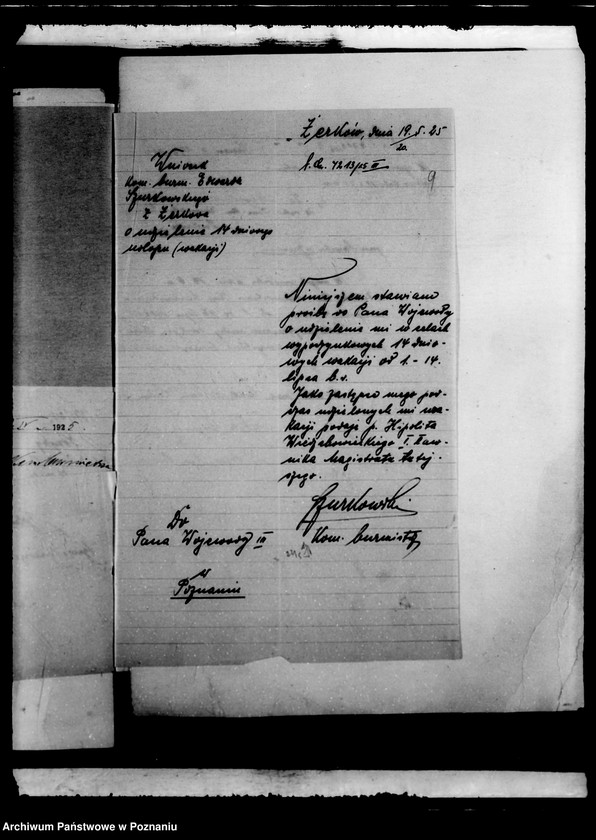 Żerków, dnia 19.5.25
20.
9
Wniosek
kom. burm. Edwarda
Szurkowskiego
z Żerkowa
o udzielenie 14 dniowego
urlopu (wakacji)
Niniejszem stawiam
prośbę do Pana Wojewody
o udzielenie mi w celach
wypoczynkowych 14 dnio-
wych wakacji od 1. - 14.
lipca b.r.
Jako zastępcę mego pod-
czas udzielonych mi wa-
kacji podaję p. Hipolita
Wierzbowskiego I. Ław-
nika Magistratu tutej-
szego.
Szurkowski
Kom. burmistrz
Do
Pana Wojewody
w
Poznaniu
1925.
Archiwum Państwowe w Poznaniu